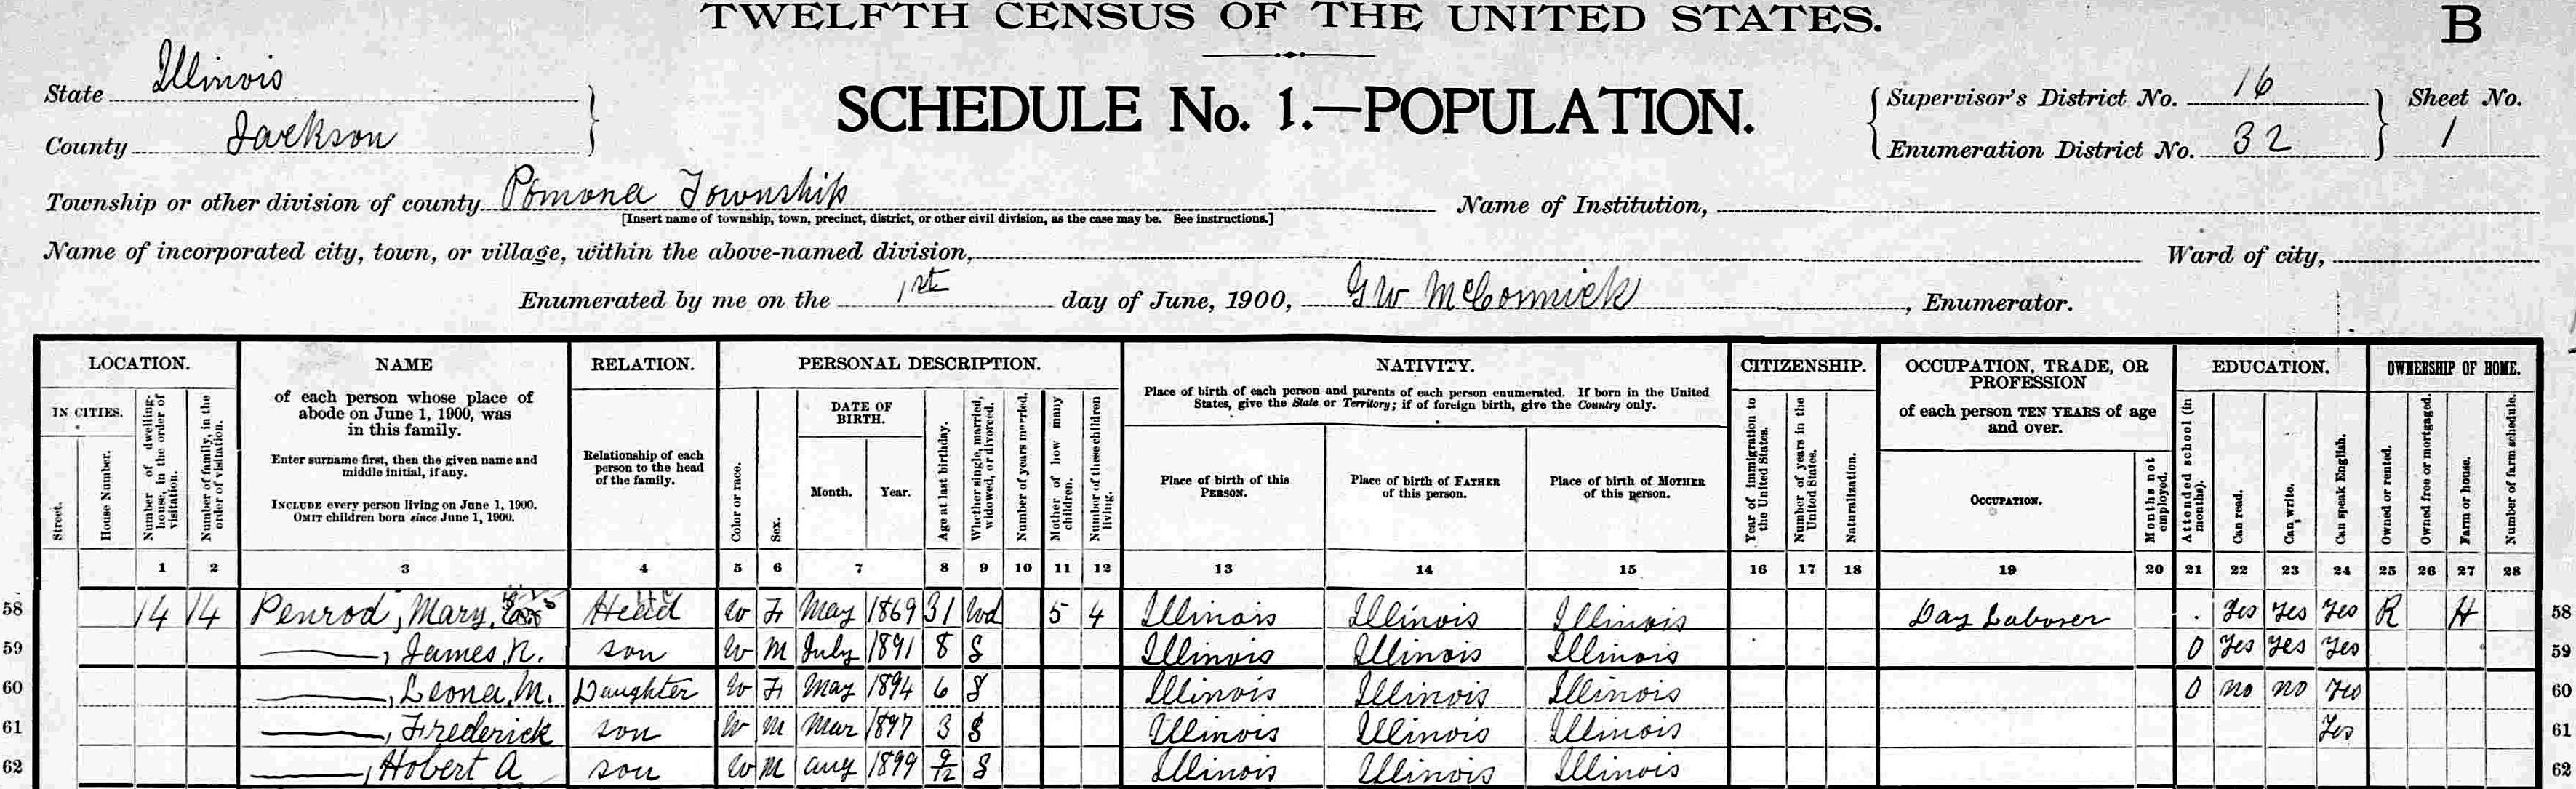 TWELFTH CENSUS OF THE UNITED STATES.
B
State Illinois
County Jackson
SCHEDULE No. 1.—POPULATION.
Supervisor's District No. 16
Enumeration District No. 32
Sheet No.
1
Township or other division of county Pomona Township
[Insert name of township, town, precinct, district, or other civil division, as the case may be. See instructions.]
Name of Institution,
Name of incorporated city, town, or village, within the above-named division,
Ward of city,
Enumerated by me on the 1st day of June, 1900, G W McCormick, Enumerator.
LOCATION.
IN CITIES.
Street.
House Number.
Number of dwelling-house, in the order of visitation.
Number of family, in the order of visitation.
NAME
of each person whose place of
abode on June 1, 1900, was
in this family.
Enter surname first, then the given name and
middle initial, if any.
INCLUDE every person living on June 1, 1900.
OMIT children born since June 1, 1900.
RELATION.
Relationship of each
person to the head
of the family.
PERSONAL DESCRIPTION.
Color or race.
Sex.
DATE OF
BIRTH.
Month.
Year.
Age at last birthday.
Whether single, married, widowed, or divorced.
Number of years married.
Mother of how many children.
Number of these children living.
NATIVITY.
Place of birth of each person and parents of each person enumerated. If born in the United
States, give the State or Territory; if of foreign birth, give the Country only.
Place of birth of this
PERSON.
Place of birth of FATHER
of this person.
Place of birth of MOTHER
of this person.
CITIZENSHIP.
Year of immigration to the United States.
Number of years in the United States.
Naturalization.
OCCUPATION, TRADE, OR
PROFESSION
of each person TEN YEARS of age
and over.
OCCUPATION.
Months not employed.
EDUCATION.
Attended school (in months).
Can read.
Can write.
Can speak English.
OWNERSHIP OF HOME.
Owned or rented.
Owned free or mortgaged.
Farm or house.
Number of farm schedule.
1 2 3 4 5 6 7 8 9 10 11 12 13 14 15 16 17 18 19 20 21 22 23 24 25 26 27 28
58 14 14 Penrod, Mary, Head W F May 1869 31 Wd 5 4 Illinois Illinois Illinois Day Laborer Yes Yes Yes R H 58
59 —, James R. son W M July 1891 8 S Illinois Illinois Illinois 0 Yes Yes Yes 59
60 —, Leona, M. Daughter W F May 1894 6 S Illinois Illinois Illinois 0 no no Yes 60
61 —, Frederick son W M Mar 1897 3 S Illinois Illinois Illinois Yes 61
62 —, Hobert A son W M aug 1899 9/12 S Illinois Illinois Illinois 62